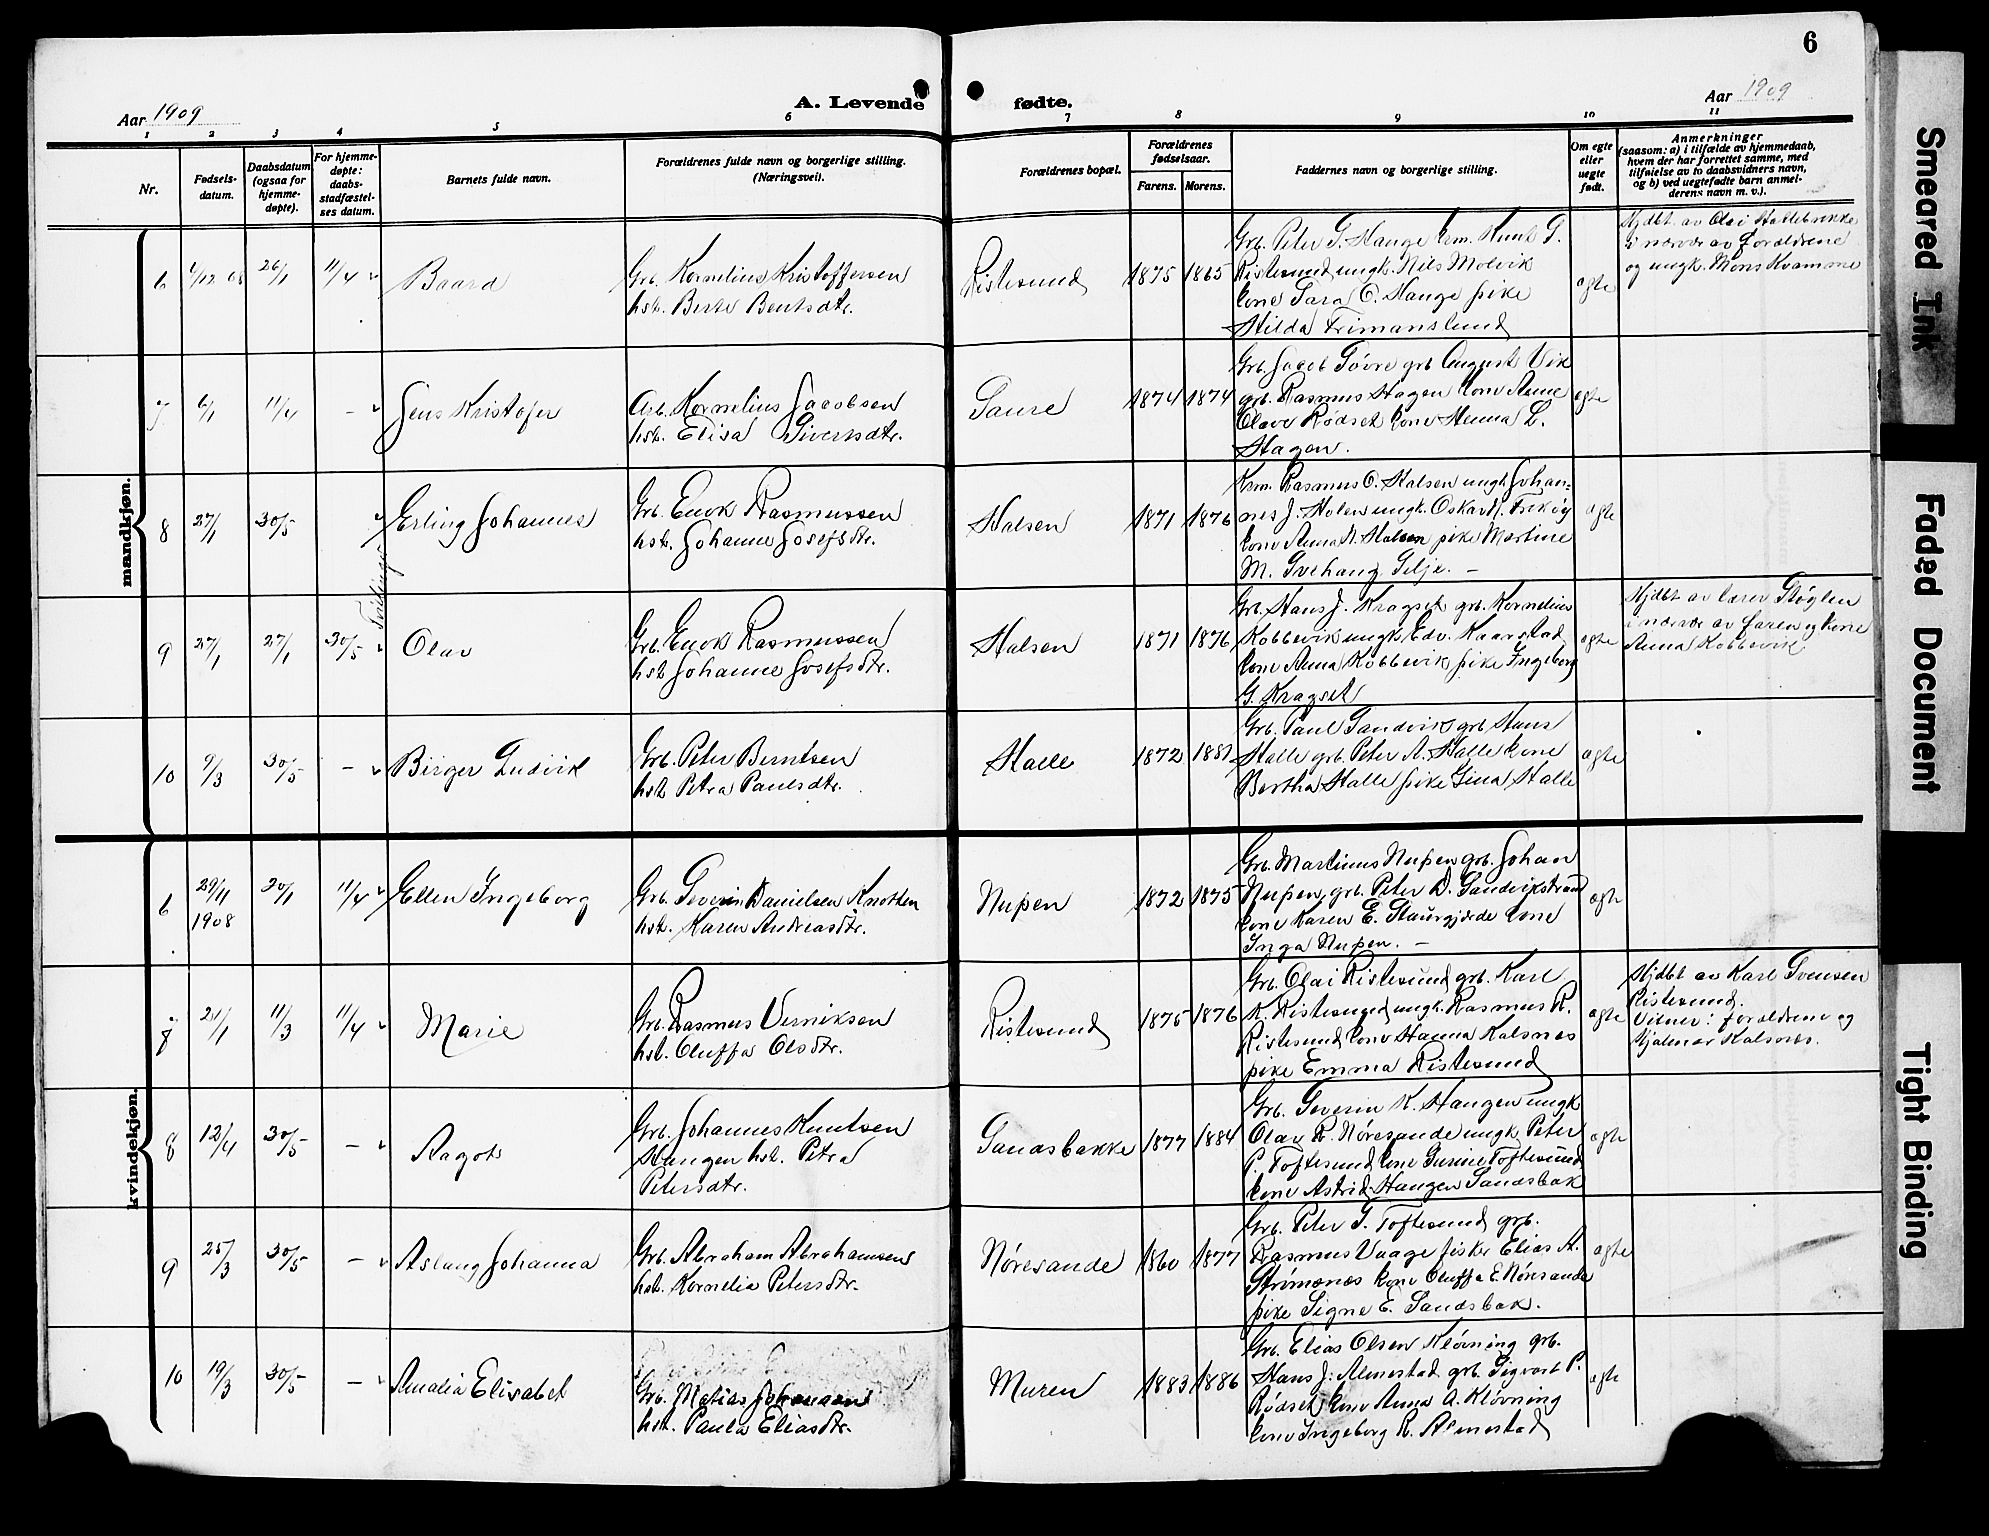 6
Aar 1909
A. Levende fødte.
Aar 1909
1 2 3 4 5 6 7 8 9 10 11
Nr.
Fødsels-
datum.
Daabsdatum
(ogsaa for
hjemme-
døpte).
For hjemme-
døpte:
daabs-
stadfæstel-
ses datum.
Barnets fulde navn.
Forældrenes fulde navn og borgerlige stilling.
(Næringsvei).
Forældrenes bopæl.
Forældrenes
fødselsaar.
Farens. Morens.
Faddernes navn og borgerlige stilling.
Om egte
eller
uegte
født.
Anmerkninger
(saasom: a) i tilfælde av hjemmedaab,
hvem der har forrettet samme, med
tilføielse av to daabsvidners navn,
og b) ved uegtefødte barn anmel-
derens navn m. v.).
mandkjøn.
6 4/12 08 26/1 11/4 Baard
Grb. Kornelius Kristoffersen
hst. Berte Bentsdtr.
Ristesund 1875 1865
Grb. Peter G. Hauge krm. Knut G.
Ristesund ungk. Nils Molvik
kone Sara O. Hauge pike
Hilda Frimanslund
egte
Hjdbt. av Olai Hallebrekke
i nærvær av forældrene
og ungk. Mons Kvamme
7 6/1 11/4 – Jens Kristofer
Arb. Kornelius Jacobsen
hst. Elisa Sivertsdtr.
Saure 1874 1874
Grb. Jacob Søvre grb August Vik
grb. Rasmus Hagen kone Anne
Olave Rødset kone Henna L.
Hagen.
egte
8 27/1 30/5 Erling Johannes
Grb. Enok Rasmussen
hst. Johanne Josefsdtr.
Halsen 1871 1876
Krm. Rasmus O. Halsen ungk Johan=
nes J. Holen ungk. Oskar J. Frekøy
kone Anna R. Halsen pike Martine
M. Svehaug Silje. –
egte
Tvillinger
9 27/1 27/1 30/5 Olav
Grb. Enok Rasmussen
hst Johanne Josefsdtr.
Halsen 1871 1876
Grb. Hans J. Kragset grb. Kornelius
Kobbevik ungk. Edv. Kaarstad
kone Anna Kobbevik pike Ingeborg
G. Kragset
egte
Hjdbt av lærer Støylen
i nærvær av faren og kone
Anna Kobbevik
10 9/3 30/5 – Birger Ludvik
Grb. Peter Berntsen
hst. Petra Paulsdtr.
Halle 1872 1881
Grb. Paul Sandvik grb Hans
Halle grb. Peter A. Halle kone
Bertha Halle pike Gina Halle
egte
kvindekjøn.
6 29/11 1908 20/1 11/4 Ellen Ingeborg
Grb. Severin Danielsen Knotten
hst. Karen Andreasdtr.
Nupen 1872 1875
Grb. Martinus Nupen grb. Johan
Nupen, grb. Peter D. Sandvikstrand
kone Karen E. Staurgjerde kone
Inga Nupen. –
egte
7 21/1 11/3 11/4 Marie
Grb. Rasmus Verniksen
hst. Oluffa Olsdtr.
Ristesund 1875 1876
Grb. Olai Ristesund grb. Karl
K. Ristesund ungk. Rasmus R.
Ristesund kone Hanna Kalsnes
pike Emma Ristesund
egte
Hjdbt av Karl Svensen
Ristesund.
Vitner: forældrene og
Hjalmar Kalsnes.
8 12/4 30/5 – Aagot
Grb. Johannes Knutsen
Haugen hst. Petra
Petersdtr.
Sandsbakke 1877 1884
Grb. Severin K. Haugen ungk
Olav R. Nøresande ungk Peter
P. Toftesund kone Gurine Toftesund
kone Astrid Haugen Sandsbak
egte
9 25/3 30/5 – Aslaug Johanna
Grb. Abraham Abrahamsens
hst. Kornelia Petersdtr.
Nøresande 1860 1877
Grb. Peter S. Toftesund grb.
Rasmus Vaage fisker Elias A.
Strømsnes kone Oluffa E. Nøresande
pike Signe E. Sandsbak.
egte
10 19/3 30/5 – Amalia Elisabet
Grb. Matias Johansen
hst. Paula Eliasdtr.
Muren 1883 1886
Grb. Elias Olsen Kløvning grb.
Hans J. Almestad grb Sigvart P.
Rødset kone Anna A. Kløvning
kone Ingeborg R. Almestad
egte
Smeared Ink
Faded Document
Tight Binding